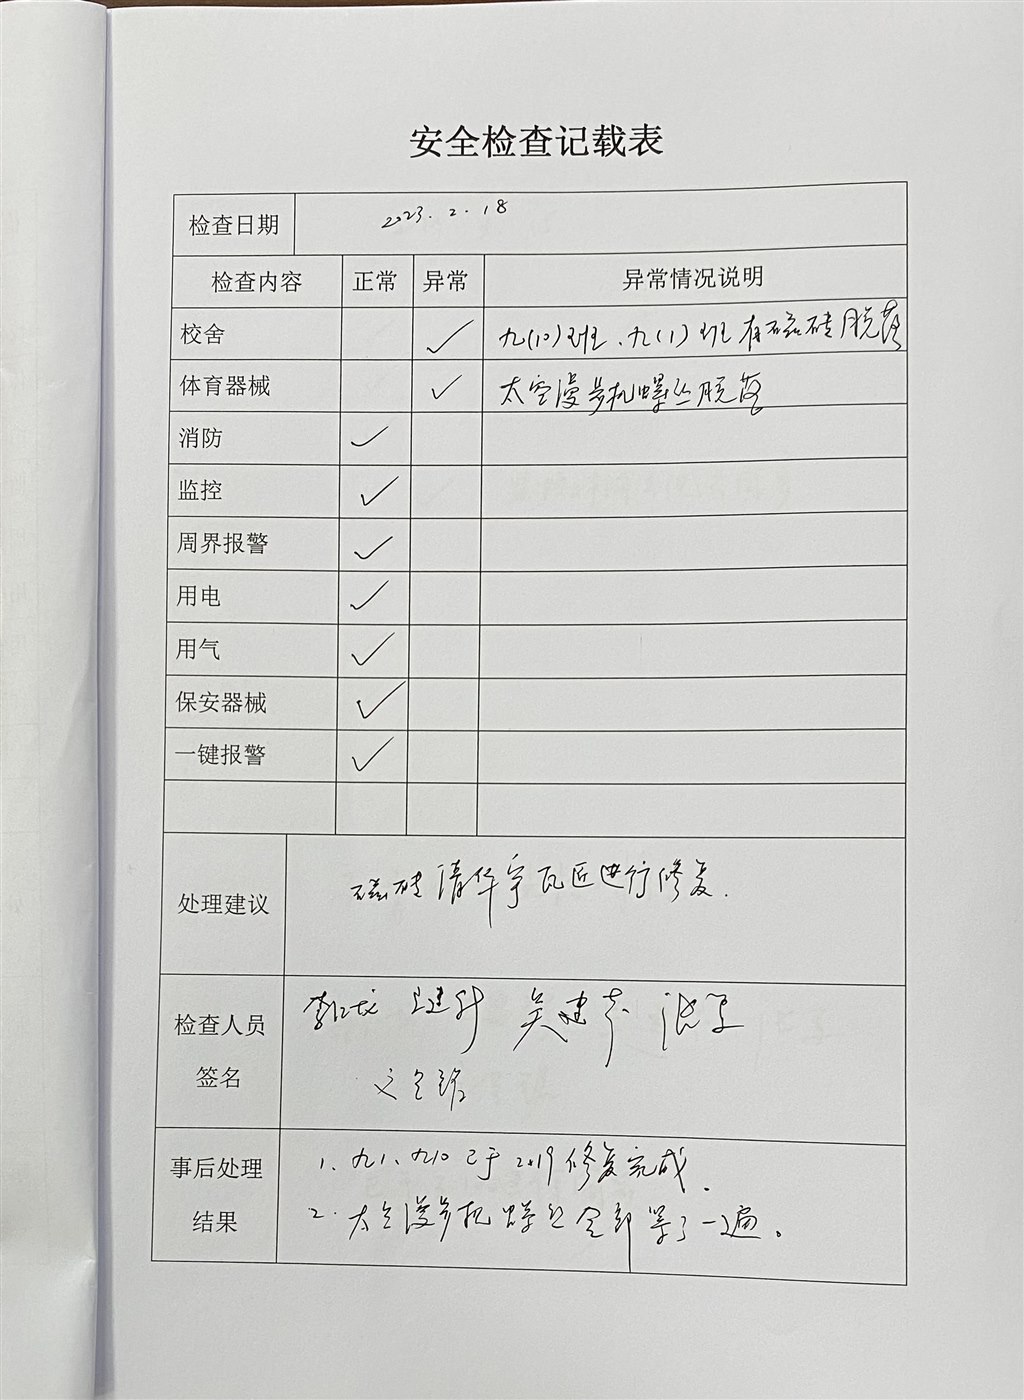 安全检查记载表
检查日期 2023.2.18
检查内容 正常 异常 异常情况说明
校舍 ✓ 九(10)班、九(1)班有磁砖脱落
体育器械 ✓ 太空漫步机螺丝脱落
消防 ✓
监控 ✓
周界报警 ✓
用电 ✓
用气 ✓
保安器械 ✓
一键报警 ✓
处理建议 磁砖请华宇瓦匠进行修复.
检查人员
签名
吴建
事后处理
结果
1、九1、九10已于2.19修复完成.
2.太空漫步机螺丝全部 了一遍。